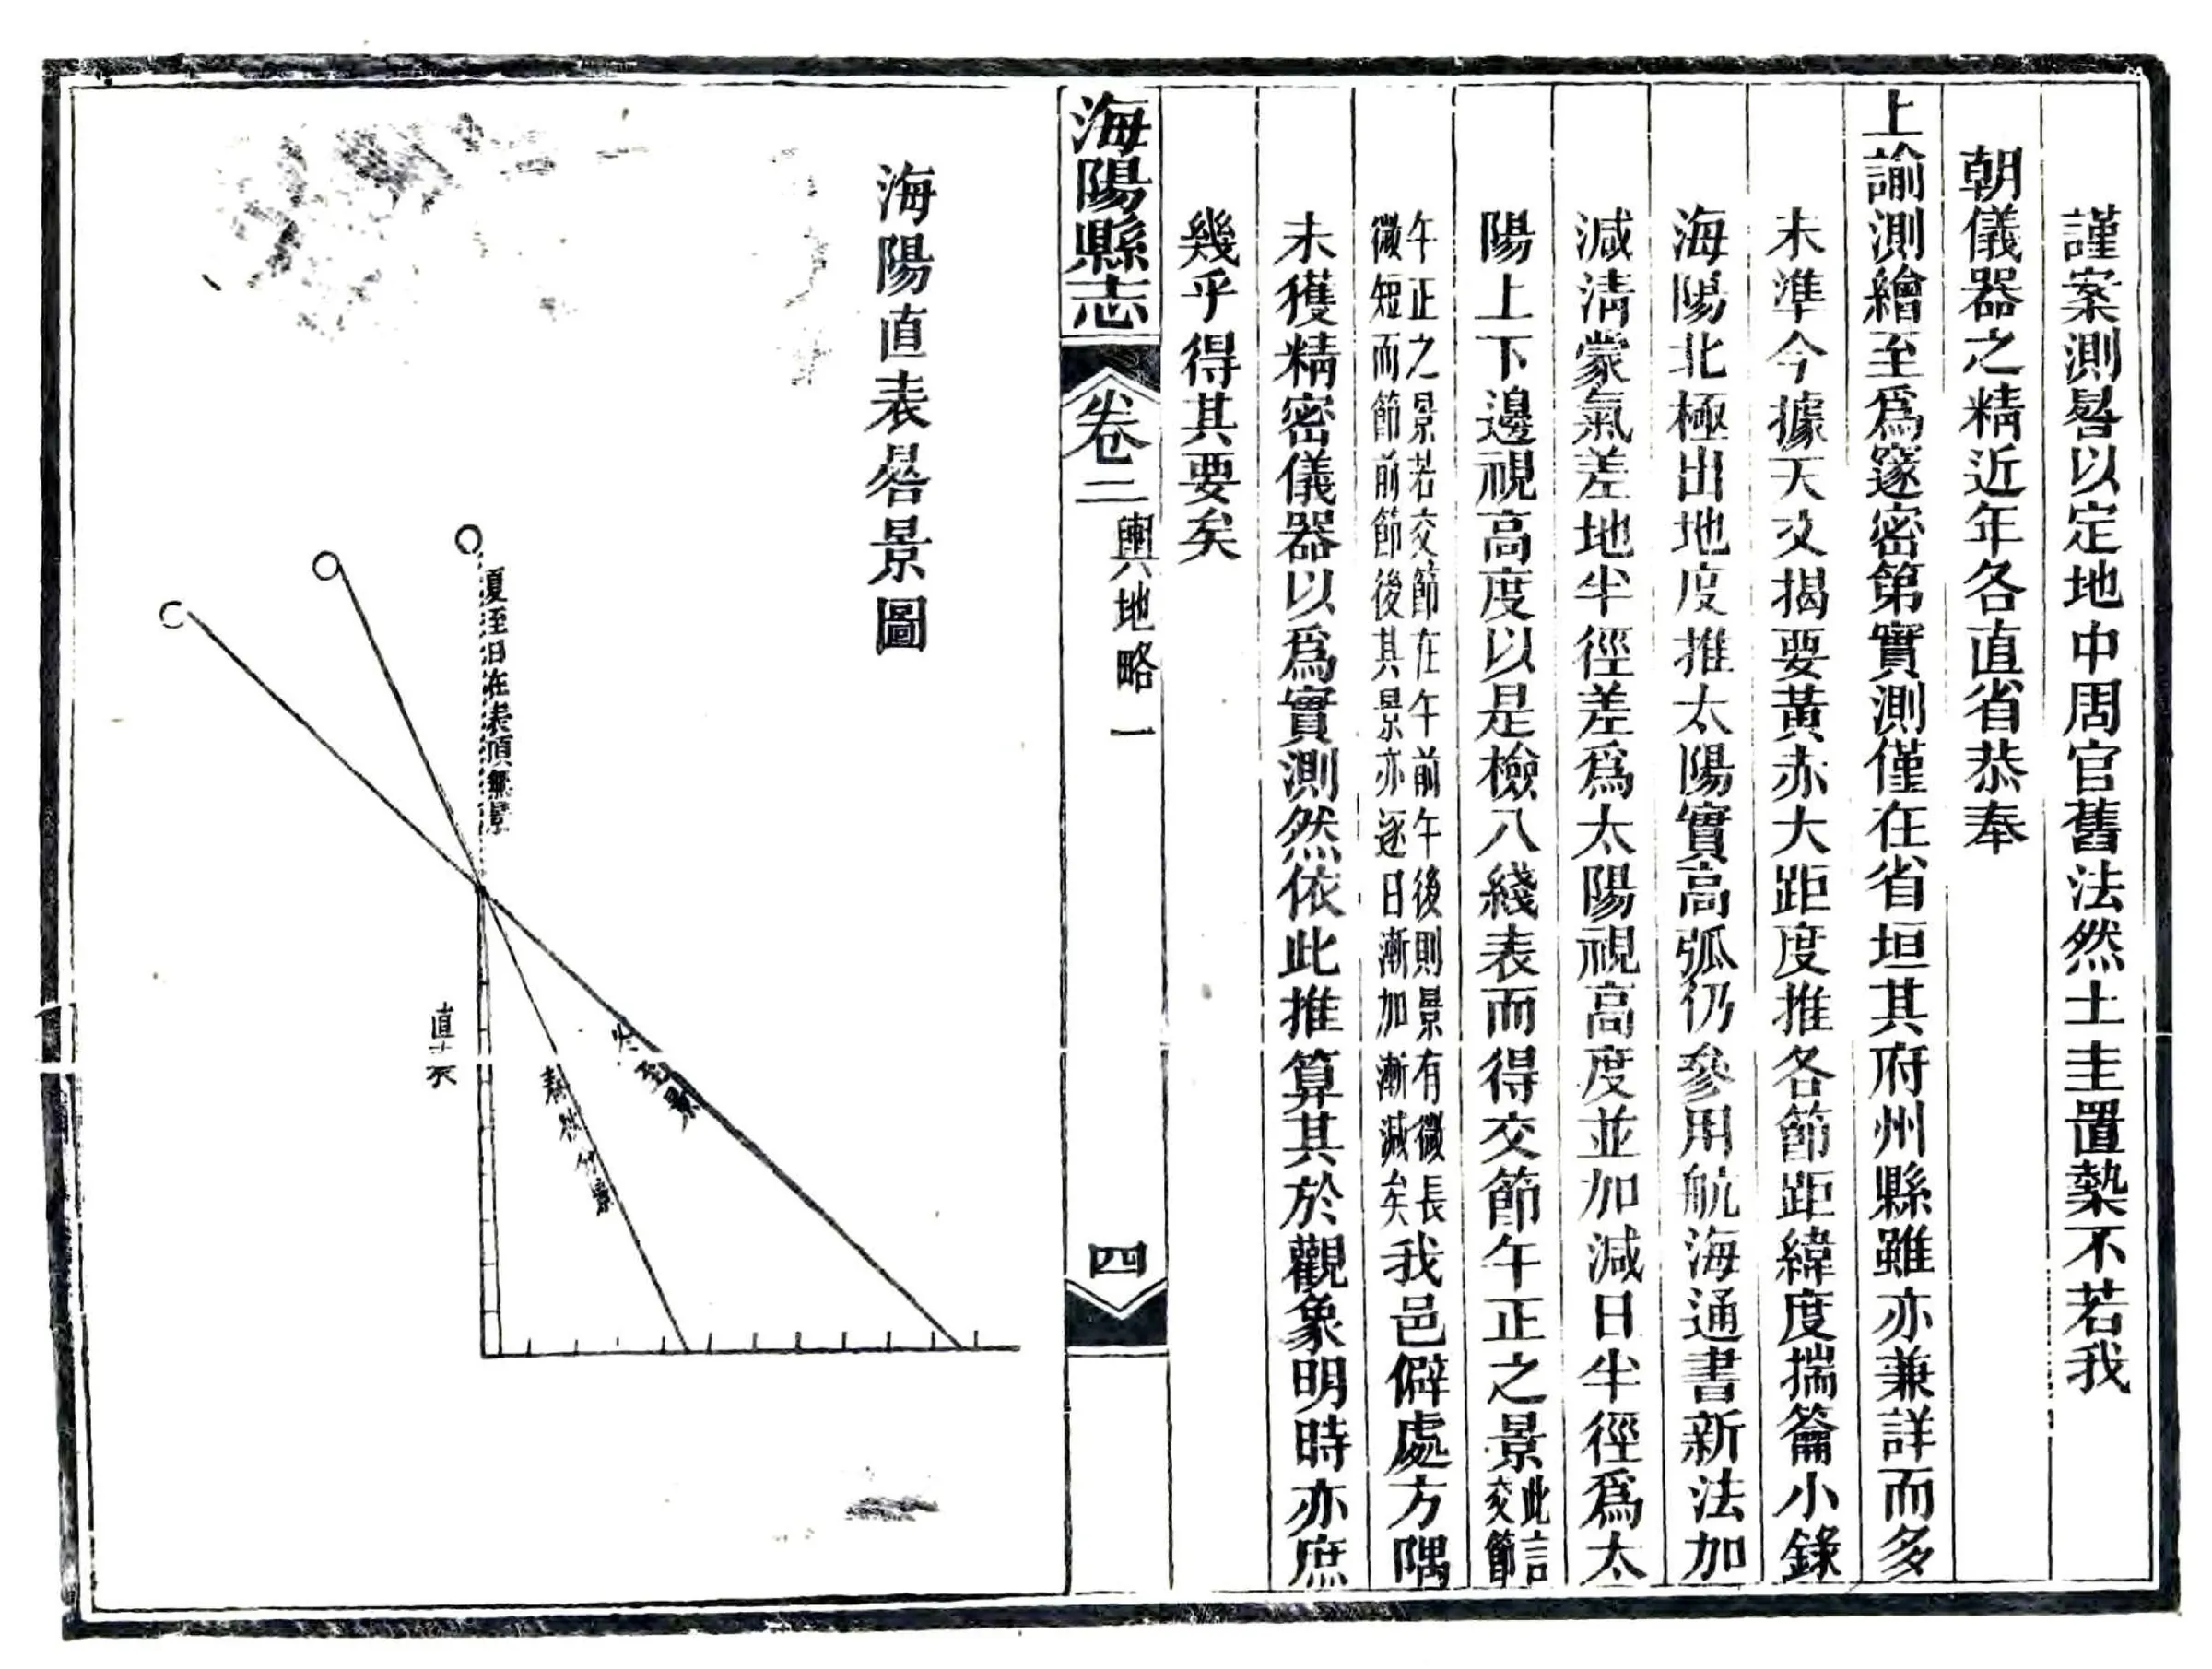 謹案測晷以定地中周官舊法然土圭置槷不若我
朝儀器之精近年各直省恭奉
上諭測繪至爲邃密第實測僅在省垣其府州縣雖亦兼詳而多
未準今據天文揭要黃赤大距度推各節距緯度揣籥小錄
海陽北極出地度推太陽實高弧仍參用航海通書新法加
減淸蒙氣差地半徑差爲太陽視高度並加減日半徑爲太
陽上下邊視高度以是檢八綫表而得交節午正之景此言交節
午正之景若交節在午前午後則景有微長微短而節前節後其景亦逐日漸加漸減矣我邑僻處方隅
未獲精密儀器以爲實測然依此推算其於觀象明時亦庶
幾乎得其要矣
海陽縣志 卷二 輿地略一 四
海陽直表晷景圖
夏至日在表頂無景
直表
春秋分景
冬至景